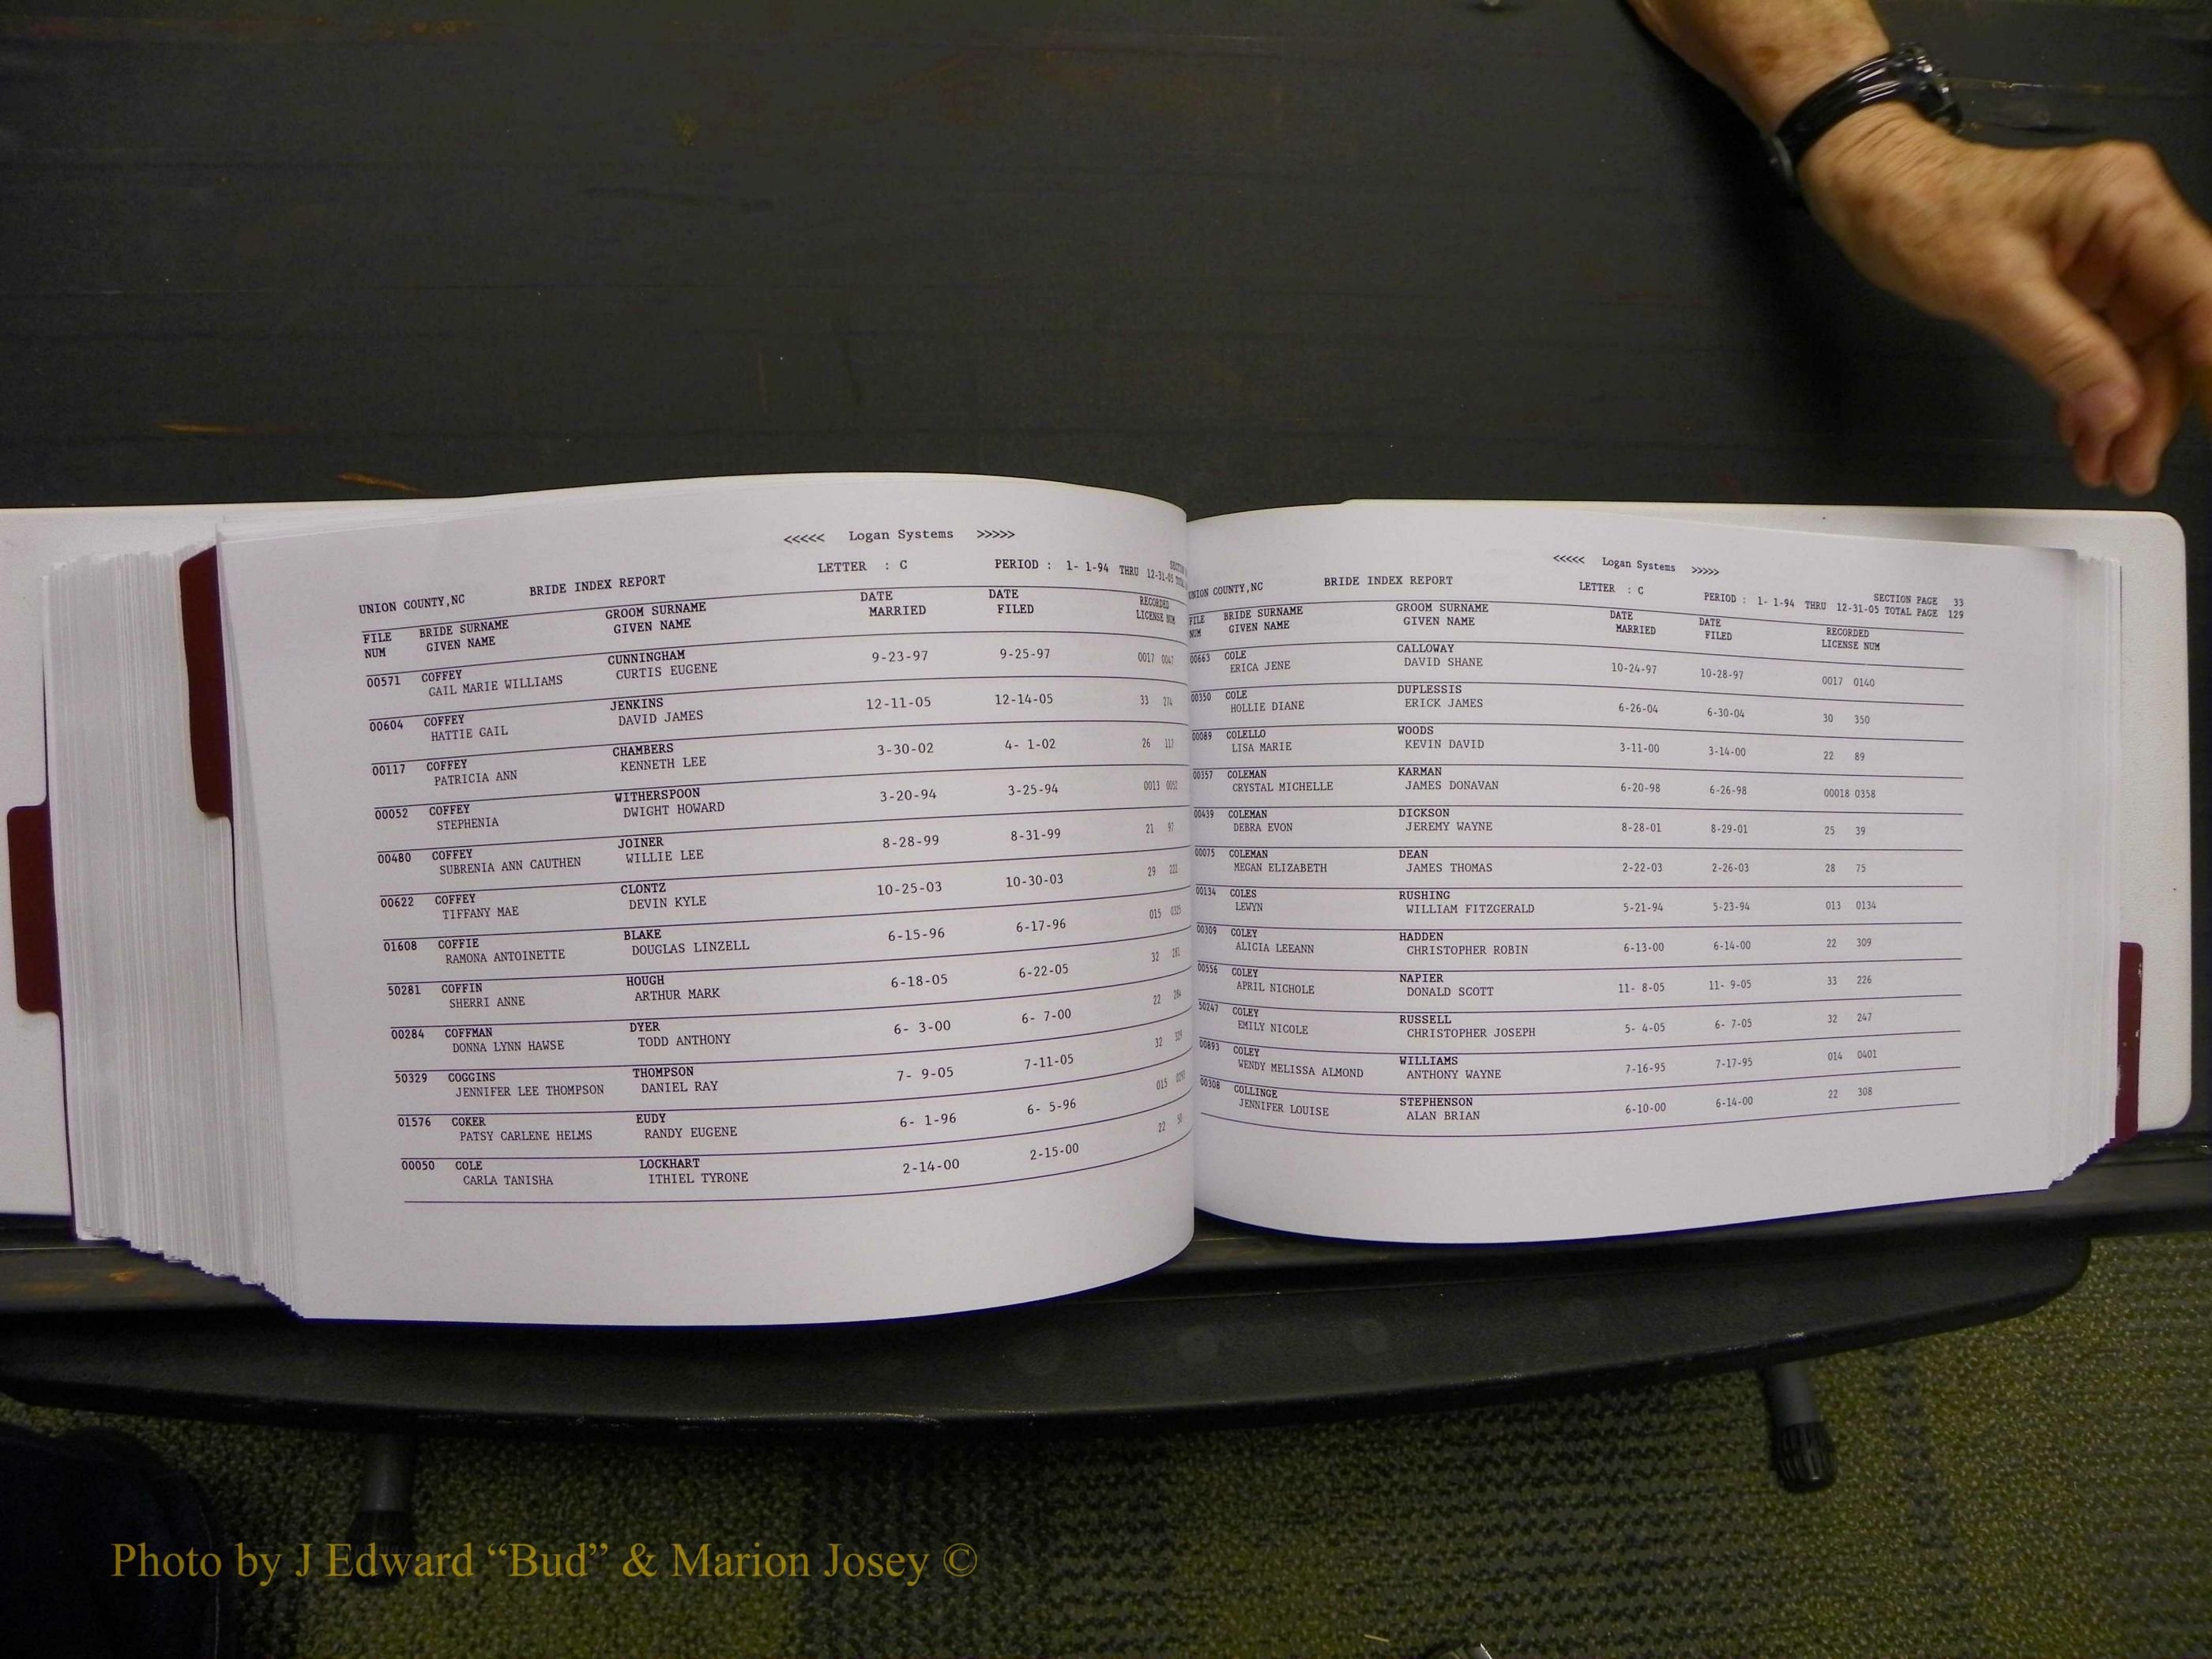 <<<<< Logan Systems >>>>>
UNION COUNTY,NC BRIDE INDEX REPORT LETTER : C PERIOD : 1- 1-94 THRU 12-31-05
FILE BRIDE SURNAME GROOM SURNAME DATE DATE RECORDED
NUM GIVEN NAME GIVEN NAME MARRIED FILED LICENSE NUM
00571 COFFEY CUNNINGHAM 9-23-97 9-25-97 0017
GAIL MARIE WILLIAMS CURTIS EUGENE
00604 COFFEY JENKINS 12-11-05 12-14-05 33 274
HATTIE GAIL DAVID JAMES
00117 COFFEY CHAMBERS 3-30-02 4- 1-02 26 117
PATRICIA ANN KENNETH LEE
00052 COFFEY WITHERSPOON 3-20-94 3-25-94 0013 0052
STEPHENIA DWIGHT HOWARD
00480 COFFEY JOINER 8-28-99 8-31-99 21 97
SUBRENIA ANN CAUTHEN WILLIE LEE
00622 COFFEY CLONTZ 10-25-03 10-30-03 29
TIFFANY MAE DEVIN KYLE
01608 COFFIE BLAKE 6-15-96 6-17-96 015
RAMONA ANTOINETTE DOUGLAS LINZELL
50281 COFFIN HOUGH 6-18-05 6-22-05 32 281
SHERRI ANNE ARTHUR MARK
00284 COFFMAN DYER 6- 3-00 6- 7-00 22 284
DONNA LYNN HAWSE TODD ANTHONY
50329 COGGINS THOMPSON 7- 9-05 7-11-05 32 329
JENNIFER LEE THOMPSON DANIEL RAY
01576 COKER EUDY 6- 1-96 6- 5-96 015
PATSY CARLENE HELMS RANDY EUGENE
00050 COLE LOCKHART 2-14-00 2-15-00 22 50
CARLA TANISHA ITHIEL TYRONE
<<<<< Logan Systems >>>>>
UNION COUNTY,NC BRIDE INDEX REPORT LETTER : C SECTION PAGE 33
PERIOD : 1- 1-94 THRU 12-31-05 TOTAL PAGE 129
FILE BRIDE SURNAME GROOM SURNAME DATE DATE RECORDED
NUM GIVEN NAME GIVEN NAME MARRIED FILED LICENSE NUM
00663 COLE CALLOWAY 10-24-97 10-28-97 0017 0140
ERICA JENE DAVID SHANE
00350 COLE DUPLESSIS 6-26-04 6-30-04 30 350
HOLLIE DIANE ERICK JAMES
00089 COLELLO WOODS 3-11-00 3-14-00 22 89
LISA MARIE KEVIN DAVID
00357 COLEMAN KARMAN 6-20-98 6-26-98 00018 0358
CRYSTAL MICHELLE JAMES DONAVAN
00439 COLEMAN DICKSON 8-28-01 8-29-01 25 39
DEBRA EVON JEREMY WAYNE
00075 COLEMAN DEAN 2-22-03 2-26-03 28 75
MEGAN ELIZABETH JAMES THOMAS
00134 COLES RUSHING 5-21-94 5-23-94 013 0134
LEWYN WILLIAM FITZGERALD
00309 COLEY HADDEN 6-13-00 6-14-00 22 309
ALICIA LEEANN CHRISTOPHER ROBIN
00556 COLEY NAPIER 11- 8-05 11- 9-05 33 226
APRIL NICHOLE DONALD SCOTT
50247 COLEY RUSSELL 5- 4-05 6- 7-05 32 247
EMILY NICOLE CHRISTOPHER JOSEPH
00893 COLEY WILLIAMS 7-16-95 7-17-95 014 0401
WENDY MELISSA ALMOND ANTHONY WAYNE
00308 COLLINGE STEPHENSON 6-10-00 6-14-00 22 308
JENNIFER LOUISE ALAN BRIAN
Photo by J Edward “Bud” & Marion Josey ©